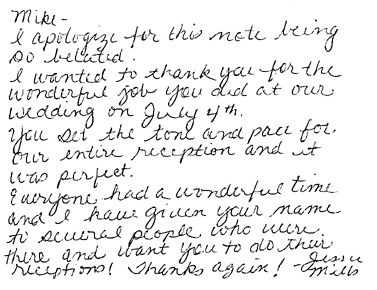 Mike-
I apologize for this note being
so belated.
I wanted to thank you for the
wonderful job you did at our
wedding on July 4th.
You set the tone and pace for
our entire reception and it
was perfect.
Everyone had a wonderful time
and I have given your name
to several people who were
there and want you to do their
receptions! Thanks again! - Jessie
Mills